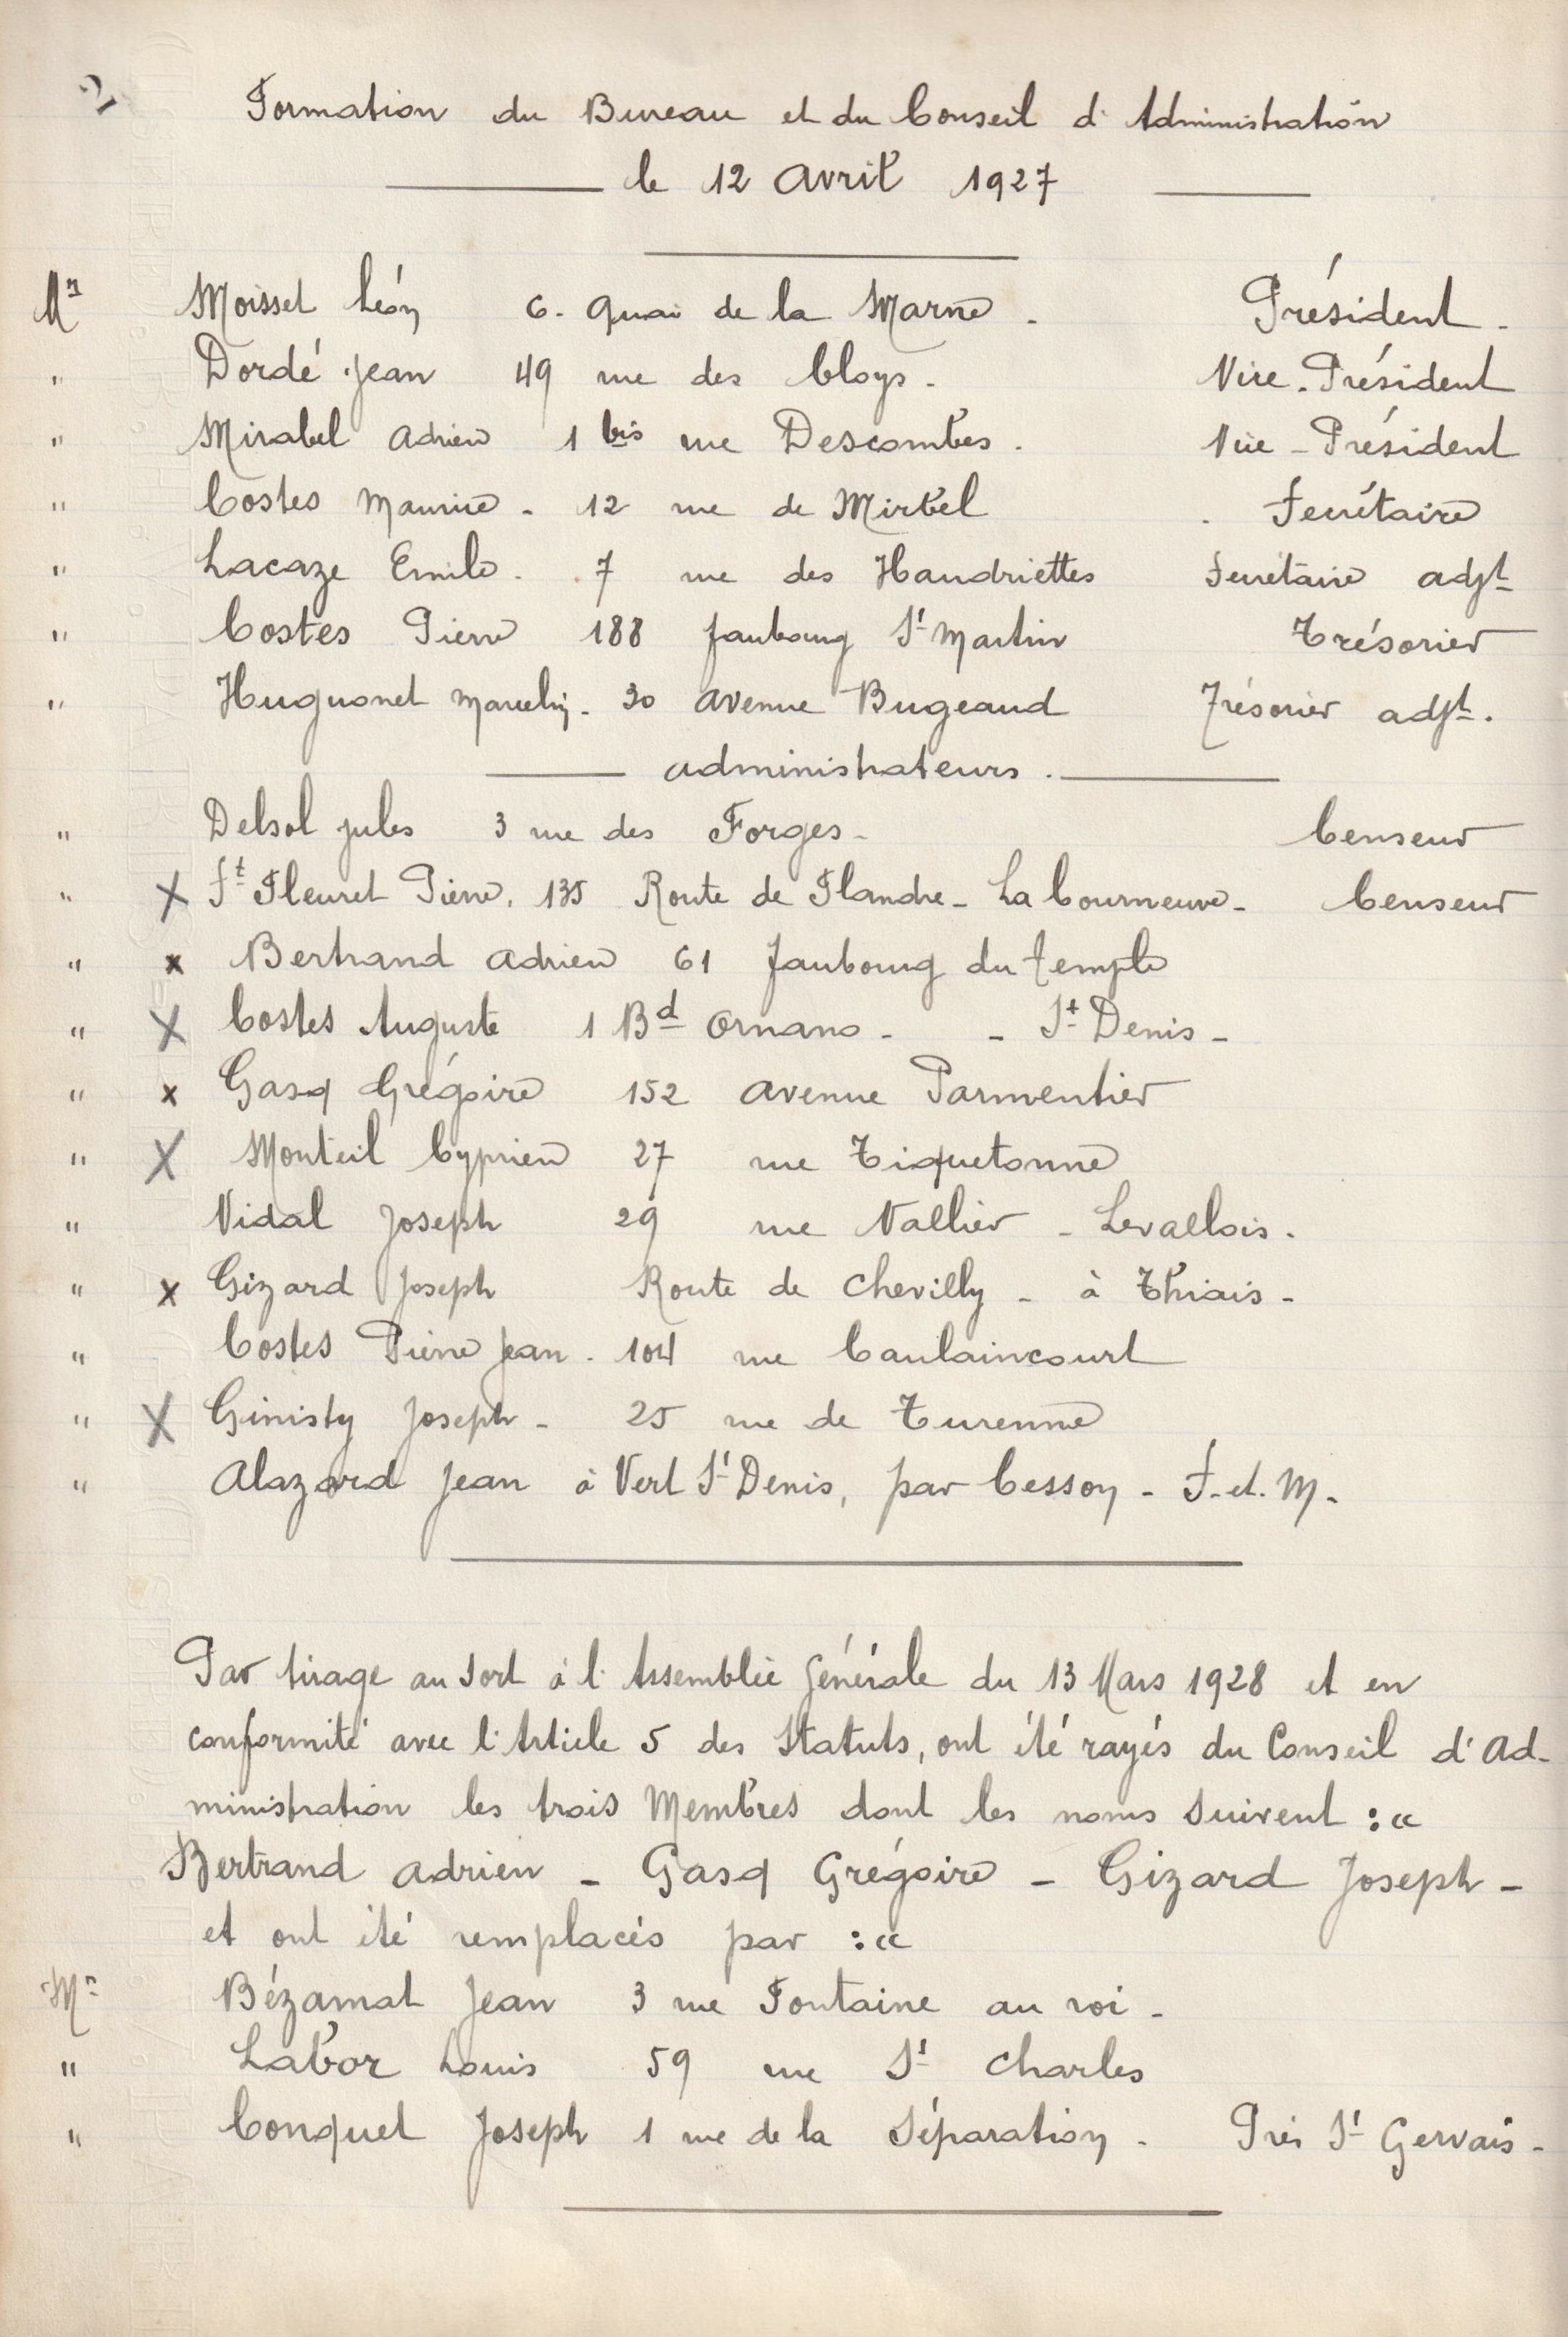 21
Formation du Bureau et du Conseil d'Administration
le 12 Avril 1927
Mr Moisset Léon 6. Quai de la Marne. Président.
" Dordé Jean 49 rue des Cloys. Vice-Président
" Mirabel Adrien 1 bis rue Descombes. Vice-Président
" Costes Maurice. 12 rue de Mirbel. Secrétaire
" Lacaze Emile. 7 rue des Haudriettes Secrétaire adjt
" Costes Pierre 188 faubourg St Martin Trésorier
" Huguonet Marcelin. 30 Avenue Bugeaud Trésorier adjt.
administrateurs.
" Delsol Jules 3 rue des Forges - Censeur
" X St Fleuret Pierre. 135 Route de Flandre - La Courneuve - Censeur
" x Bertrand Adrien 61 faubourg du temple
" X Costes Auguste 1 Bd Ornano - - St Denis -
" x Gasq Grégoire 152 Avenue Parmentier
" X Monteil Cyprien 27 rue Tiquetonne
" Vidal Joseph 29 rue Vallier - Levallois.
" x Gizard Joseph Route de Chevilly - à Thiais -
" Costes Pierre Jean. 104 rue Caulaincourt
" X Ginisty Joseph - 25 rue de Turenne
" Alazard Jean à Vert St Denis, par Cesson - S. et. M.
Par tirage au sort à l'Assemblée Générale du 13 Mars 1928 et en
conformité avec l'Article 5 des Statuts, ont été rayés du Conseil d'Ad-
ministration les trois Membres dont les noms suivent :«
Bertrand Adrien - Gasq Grégoire - Gizard Joseph -
et ont été remplacés par :«
Mr Bézamat Jean 3 rue Fontaine au roi -
" Labor Louis 59 rue St Charles
" Conquet Joseph 1 rue de la Séparation - Prés St Gervais -